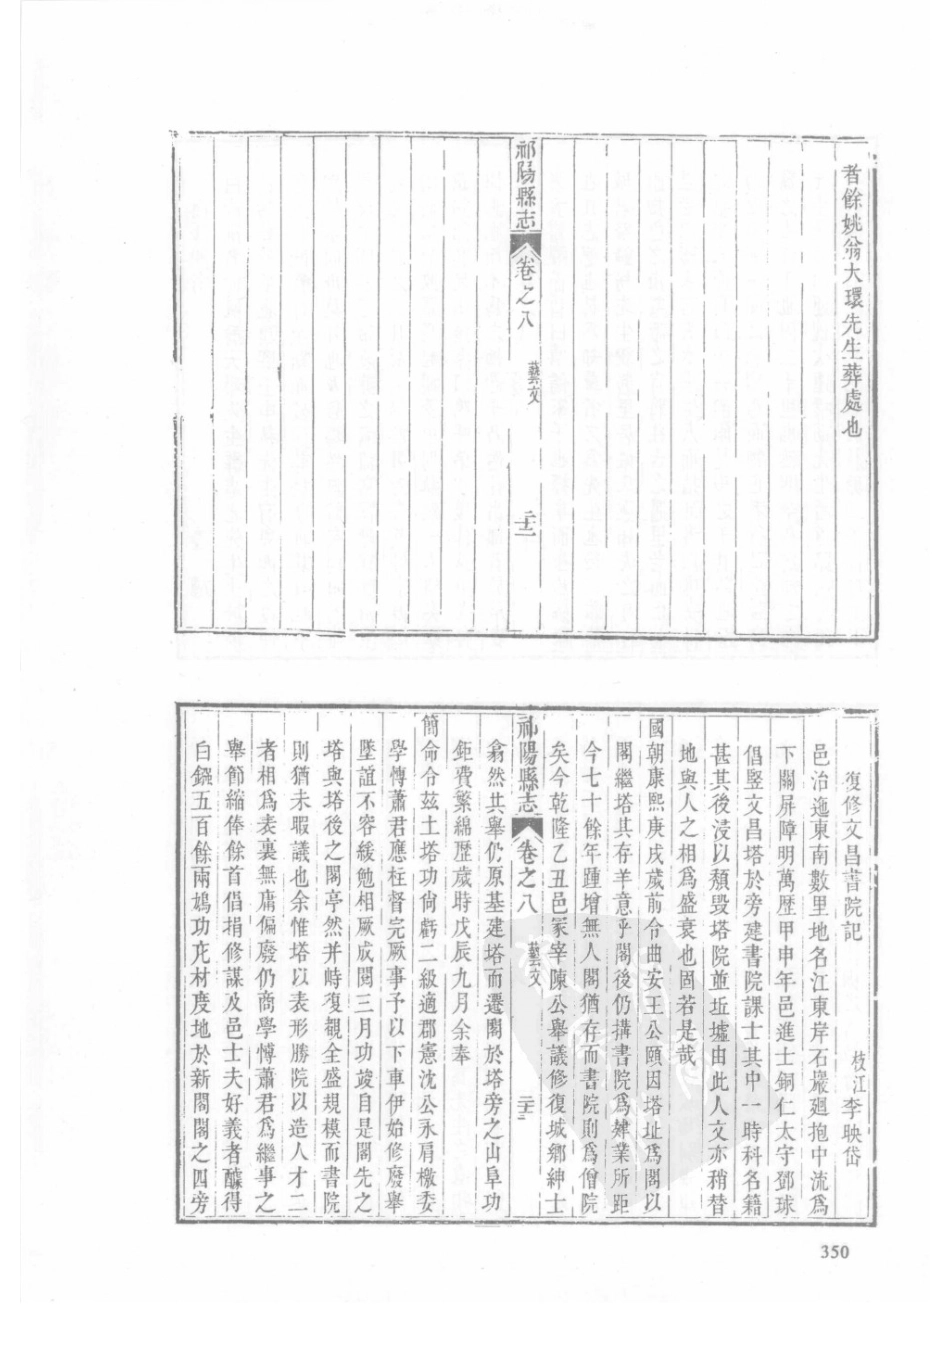 者餘姚翁大環先生葬處也
祁陽縣志 卷之八 藝文 二十二
復修文昌書院記 枝江李映岱
邑治迤東南數里地名江東岸石巖廻抱中流爲
下關屏障明萬歷甲申年邑進士銅仁太守鄧球
倡竪文昌塔於旁建書院課士其中一時科名籍
甚其後浸以頹毀塔院並坵墟由此人文亦稍替
地與人之相爲盛衰也固若是哉
國朝康熙庚戌歲前令曲安王公頤因塔址爲閣以
閣繼塔其存羊意乎閣後仍搆書院爲肄業所距
今七十餘年踵增無人閣猶存而書院則爲僧院
矣今乾隆乙丑邑冢宰陳公舉議修復城鄉紳士
祁陽縣志 卷之八 藝文 二十三
翕然共舉仍原基建塔而遷閣於塔旁之山阜功
鉅費繁綿歷歲時戊辰九月余奉
簡命令兹土塔功尙虧二級適郡憲沈公永肩檄委
學博蕭君應柱督完厥事予以下車伊始修廢舉
墜誼不容緩勉相厥成閱三月功竣自是閣先之
塔與塔後之閣亭然并峙復覩全盛規模而書院
則猶未暇議也余惟塔以表形勝院以造人才二
者相爲表裏無庸偏廢仍商學博蕭君爲繼事之
舉節縮俸餘首倡捐修謀及邑士夫好義者醵得
白鏹五百餘兩鳩功庀材度地於新閣閣之四旁
350